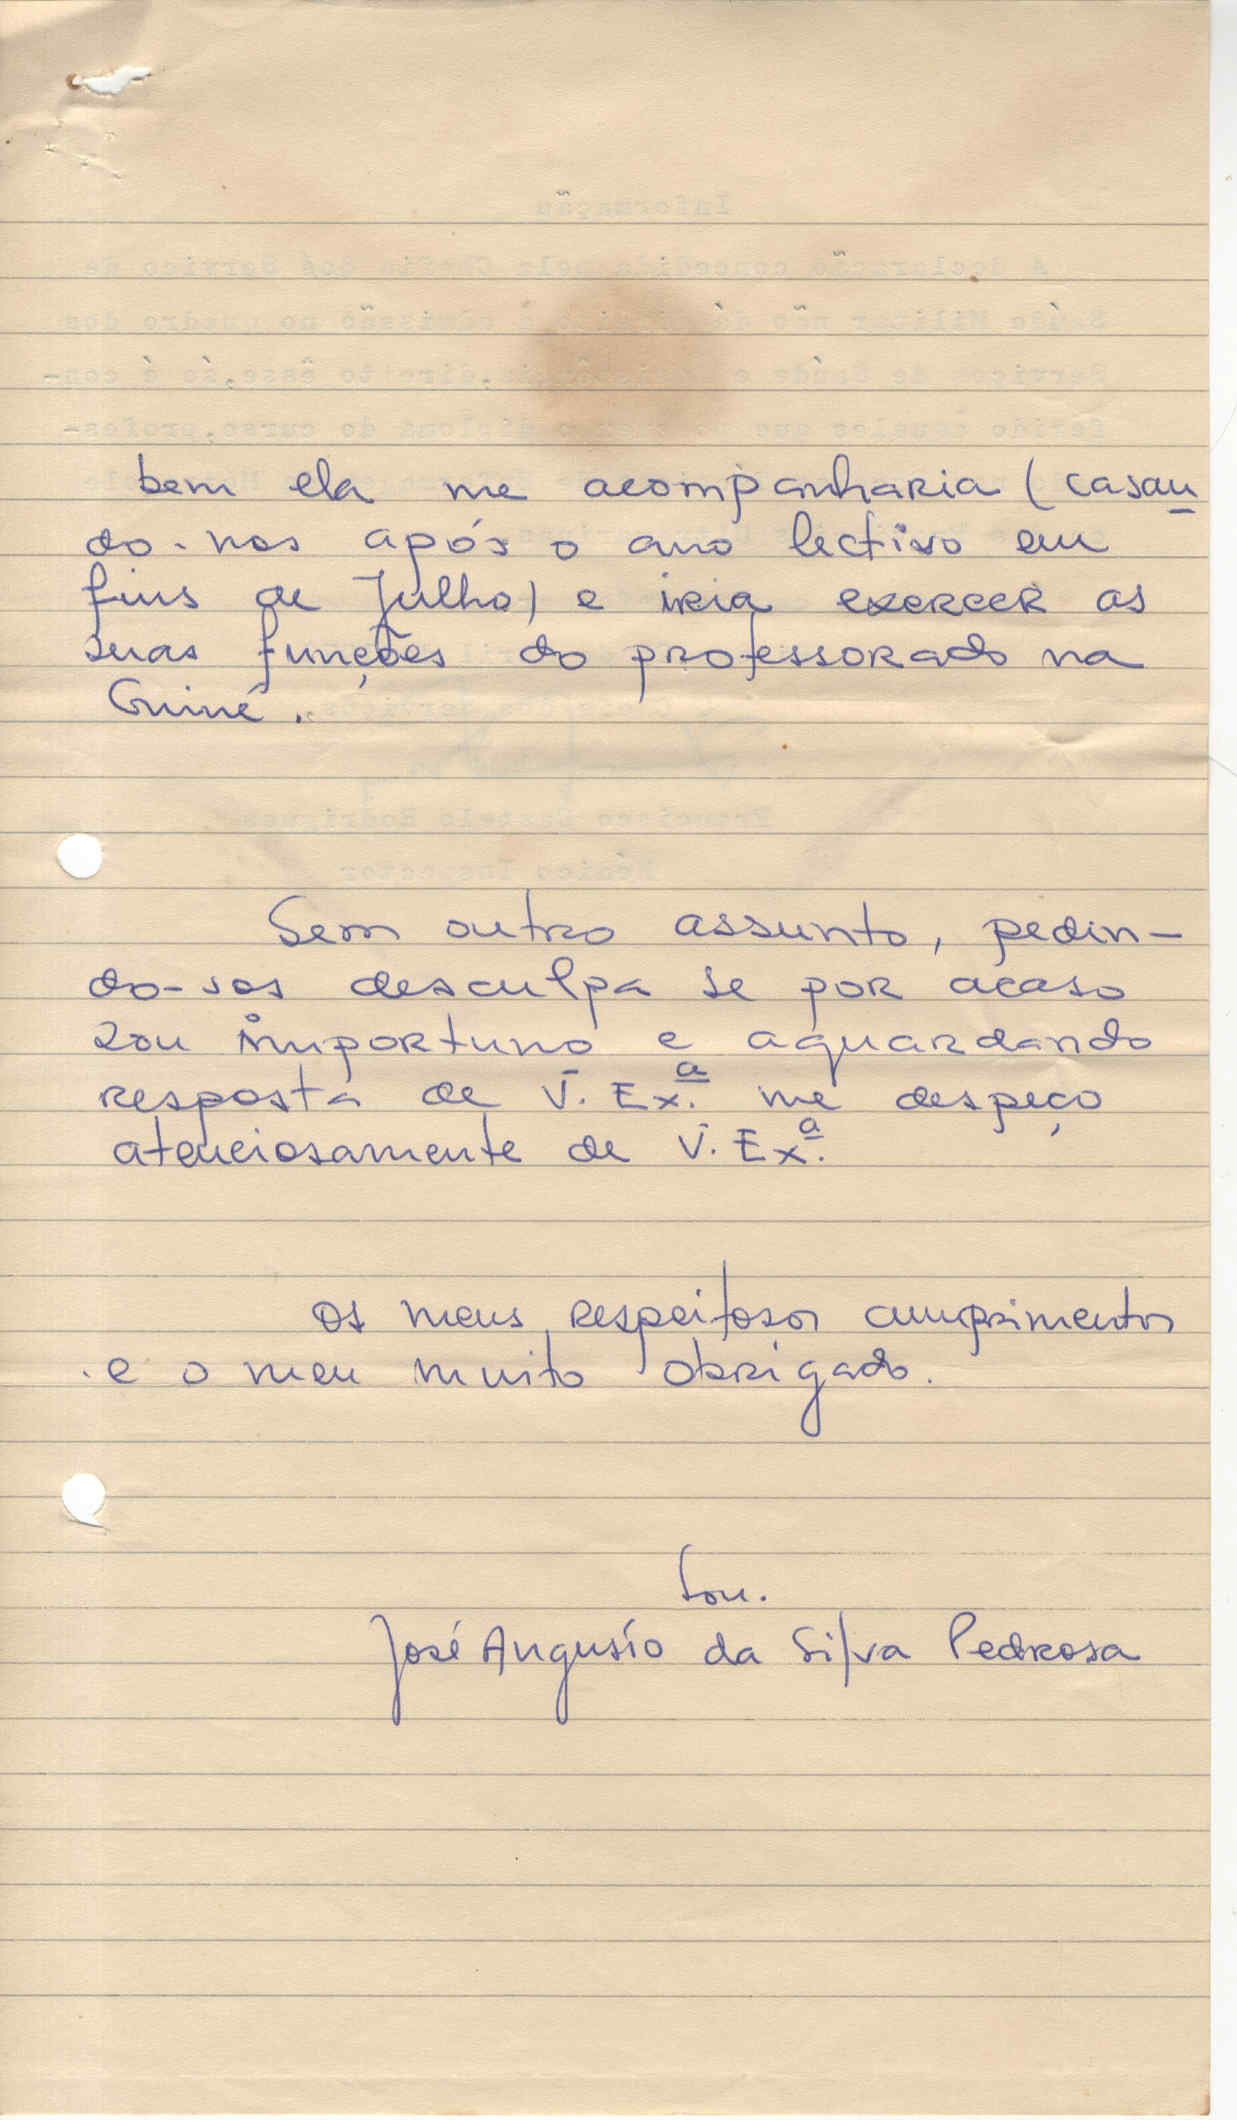 bem ela me acompanharia (casan
do-nos após o ano lectivo em
fins de Julho) e iria exercer as
suas funções do professorado na
Guiné.
Sem outro assunto, pedin-
do-vos desculpa se por acaso
sou importuno e aguardando
resposta de V. Ex.ª me despeço
atenciosamente de V. Ex.ª
Os meus respeitosos cumprimentos
e o meu muito obrigado.
Sou.
José Augusto da Silva Pedrosa